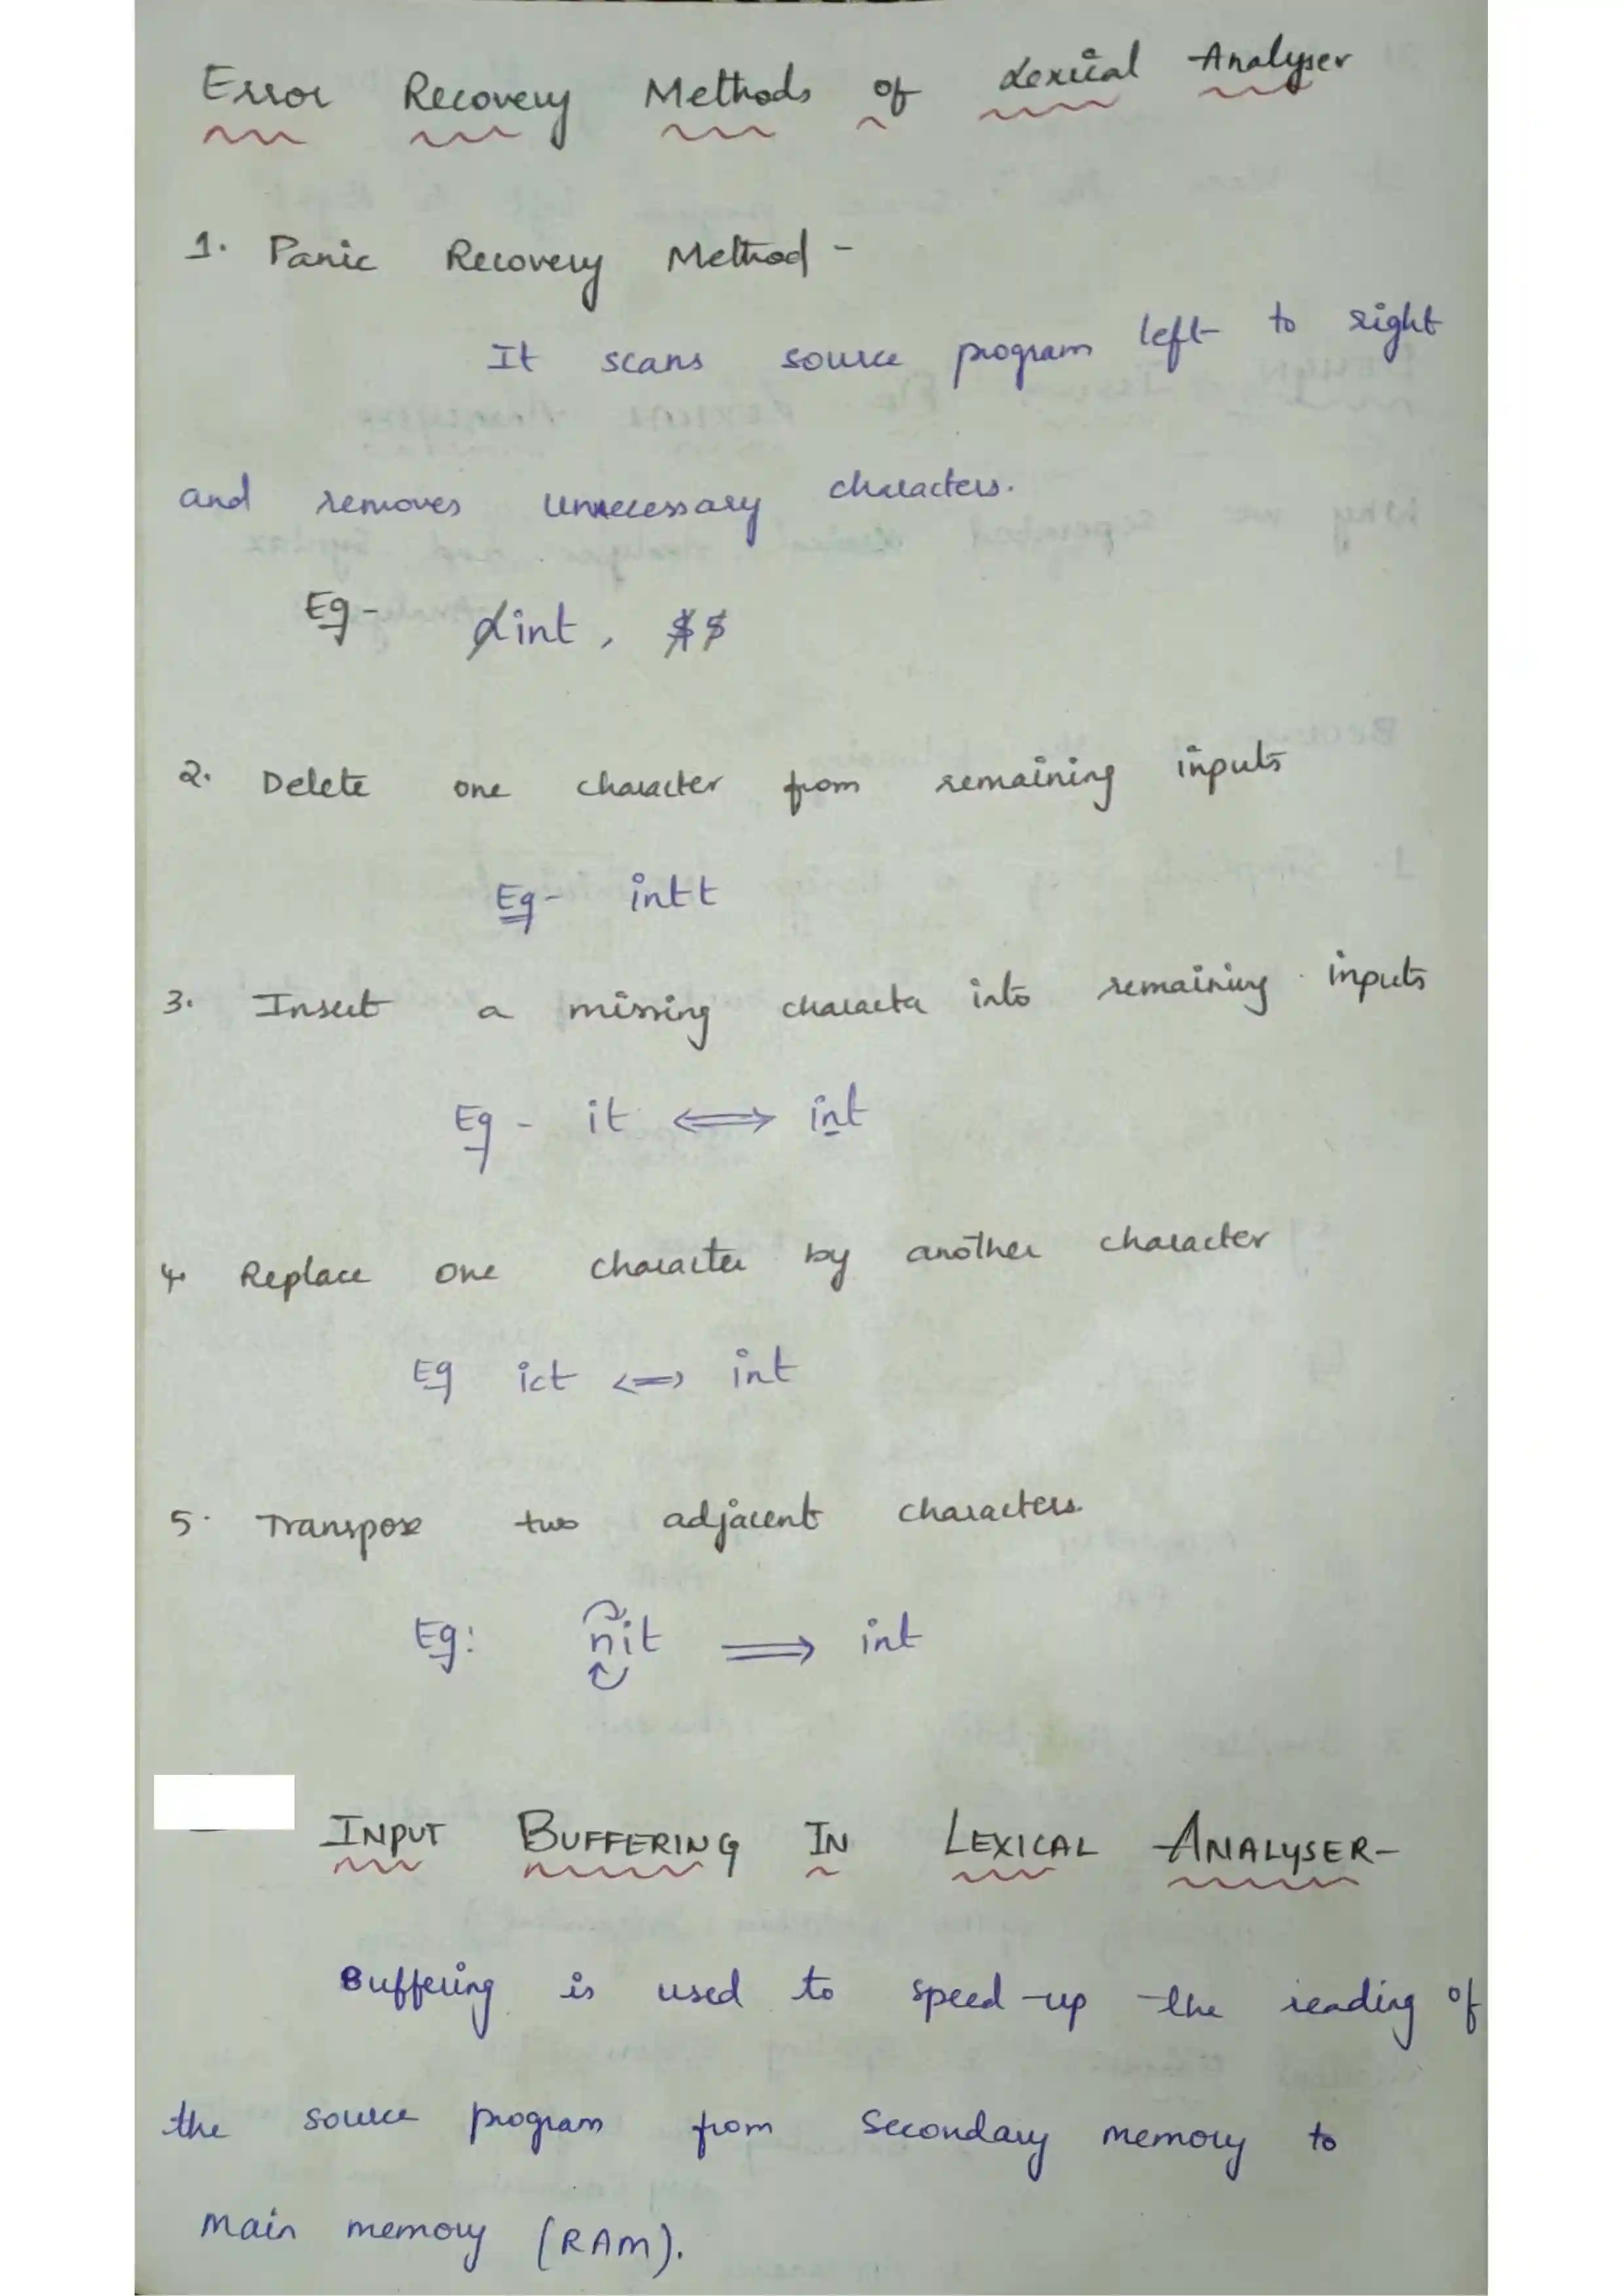 Error Recovery Methods of Lexical Analyser
1. Panic Recovery Method -
It scans source program left to right
and removes unnecessary characters.
Eg - int, $$
2. Delete one character from remaining inputs
Eg - intt
3. Insert a missing character into remaining inputs
Eg - it ⟺ int
4. Replace one character by another character
Eg ict <=> int
5. Transpose two adjacent characters.
Eg: nit ⟹ int
INPUT BUFFERING IN LEXICAL ANALYSER-
Buffering is used to speed-up the reading of
the source program from secondary memory to
main memory (RAM).